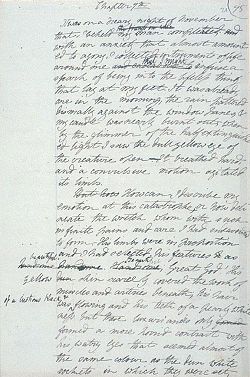 Chapter 7th
It was on a dreary night of November
that I beheld my man completed, and
with an anxiety that almost amount
ed to agony, I collected instruments of life
around me that I might infuse a
spark of being into the lifeless thing
that lay at my feet. It was already
one in the morning, the rain pattered
dismally against the window panes &
my candle was nearly burnt out, when
by the glimmer of the half extinguish
ed light I saw the dull yellow eye of
the creature open. It breathed hard
and a convulsive motion agitated
its limbs.
But how can I describe my
emotion at this catastrophe, or how delin
eate the wretch whom with such
infinite pains and care I had endeavoured
to form. His limbs were in proportion
and I had selected his features as
beautiful
handsome. Handsome! great God! His
yellow skin scarcely covered the work of
muscles and arteries beneath; his hair
of a lustrous black &
was flowing and his teeth of a pearly white
ness but these luxuriances only
formed a more horrid contrast with
his watry eyes that seemed almost of
the same colour as the dun white
sockets in which they were set,